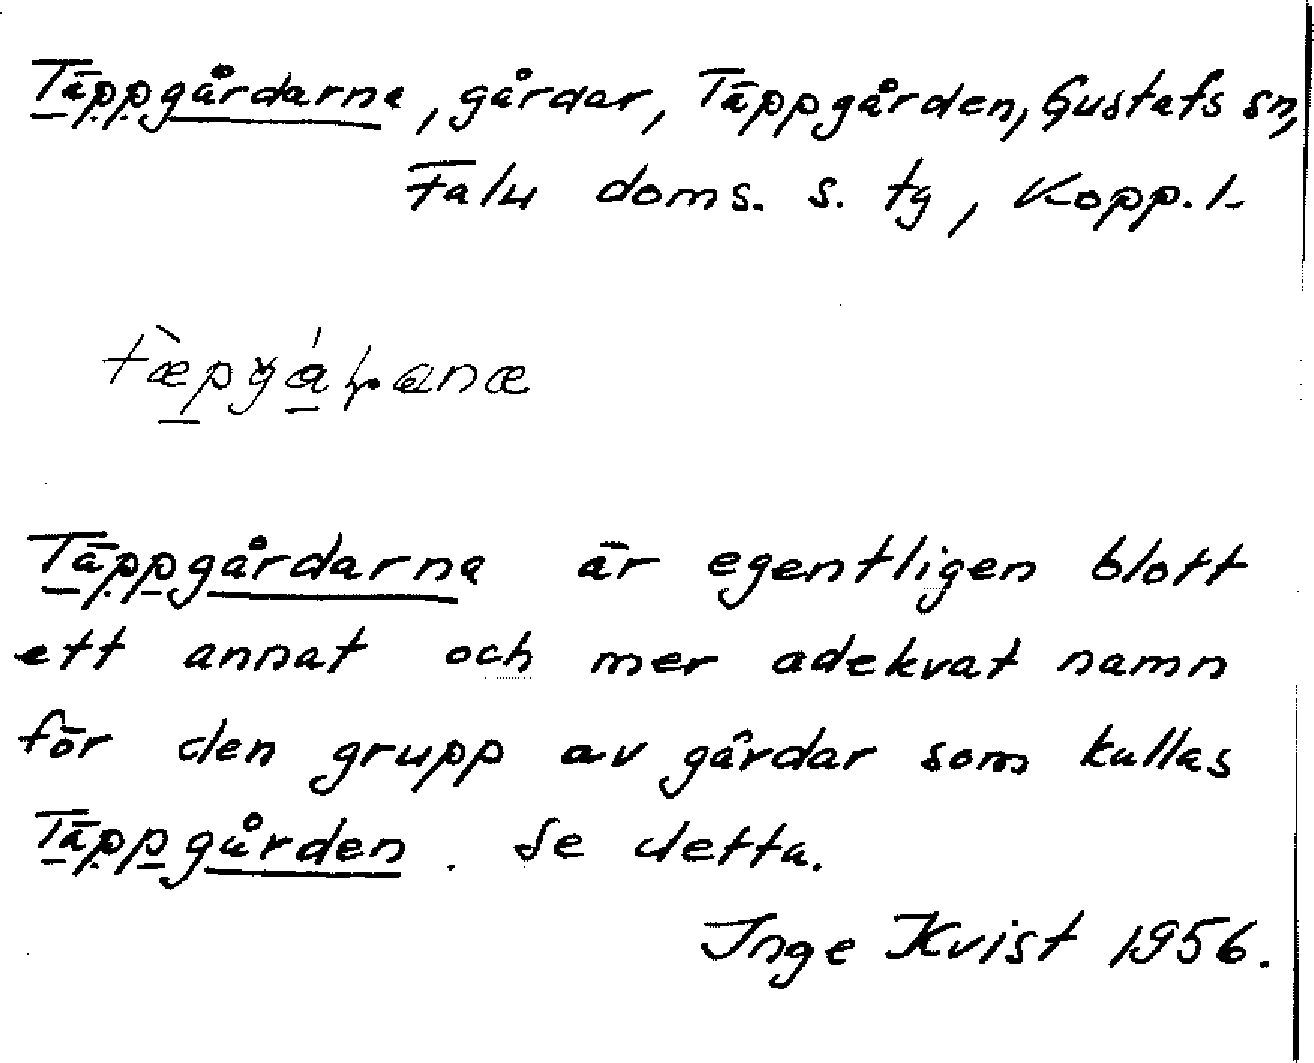 Täppgårdarna, gårdar, Täppgården, Gustafs sn,
Falu doms. s. tg, Kopp. l.
Täppgårdarna är egentligen blott
ett annat och mer adekvat namn
för den grupp av gårdar som kallas
Täppgården. Se detta.
Inge Kvist 1956.